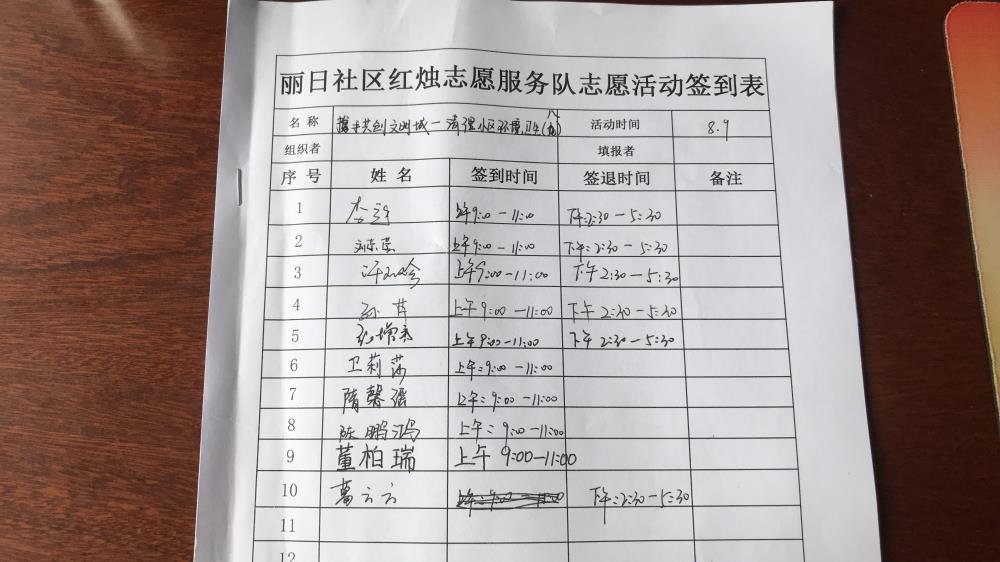 丽日社区红烛志愿服务队志愿活动签到表
名 称 携手共创文明城一清理小区环境卫生(八) 活动时间 8.9
组织者 填报者
序 号 姓 名 签到时间 签退时间 备注
1 上午9:00-11:00 下午2:30-5:30
2 上午9:00-11:00 下午:2:30-5:30
3 上午9:00-11:00 下午2:30-5:30
4 上午9:00-11:00 下午2:30-5:30
5 上午9:00-11:00 下午2:30-5:30
6 卫莉莎 上午:9:00-11:00
7 隋馨瑶 上午:9:00-11:00
8 陈鹏鸿 上午:9:00-11:00
9 董柏瑞 上午9:00-11:00
10 葛云云 下午:2:30-5:30
11
12